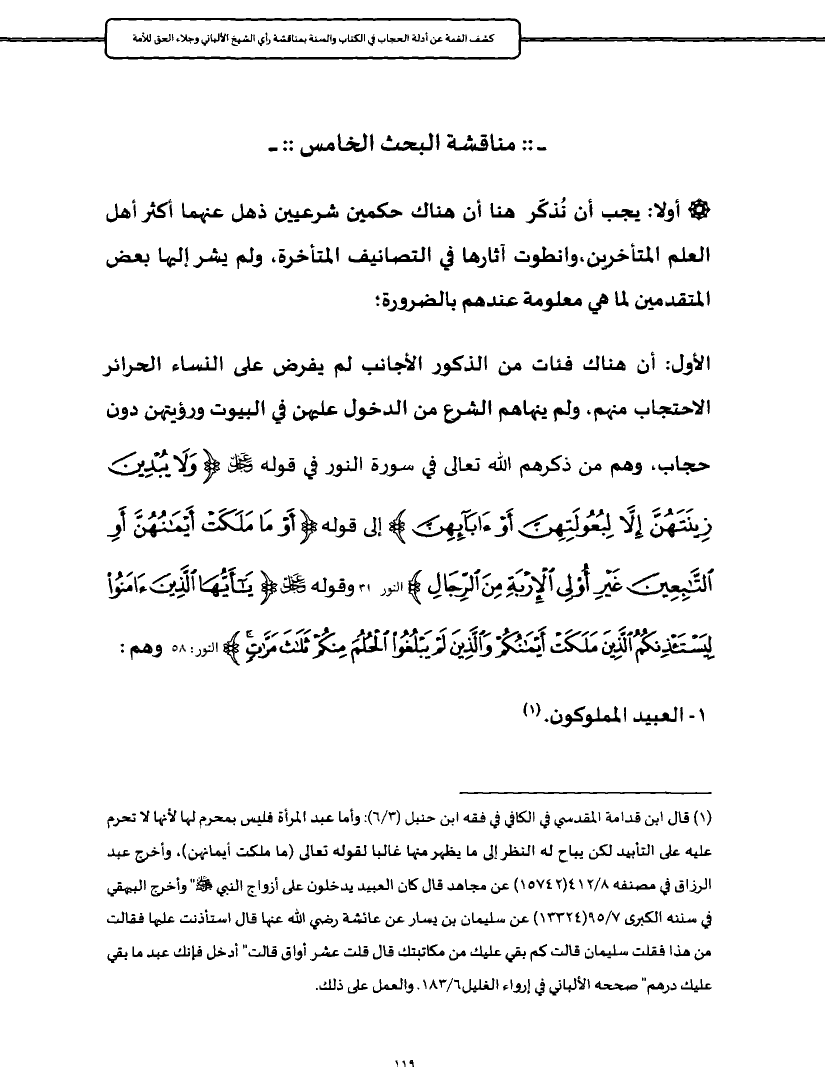 كشف الغمة عن أدلة الحجاب في الكتاب والسنة بمناقشة رأي الشيخ الألباني وجلاء الحق للأمة
ـ :: مناقشة البحث الخامس :: ـ
۞ أولا: يجب أن نُذكَر هنا أن هناك حكمين شرعيين ذهل عنهما أكثر أهل
العلم المتأخرين،وانطوت آثارها في التصانيف المتأخرة، ولم يشر إليها بعض
المتقدمين لما هي معلومة عندهم بالضرورة؛
الأول: أن هناك فئات من الذكور الأجانب لم يفرض على النساء الحرائر
الاحتجاب منهم، ولم ينهاهم الشرع من الدخول عليهن في البيوت ورؤيتهن دون
حجاب، وهم من ذكرهم الله تعالى في سورة النور في قوله ﷻ ﴿ وَلَا يُبْدِينَ
زِينَتَهُنَّ إِلَّا لِبُعُولَتِهِنَّ أَوْ ءَابَآئِهِنَّ ﴾ إلى قوله ﴿ أَوْ مَا مَلَكَتْ أَيْمَٰنُهُنَّ أَوِ
ٱلتَّٰبِعِينَ غَيْرِ أُو۟لِى ٱلْإِرْبَةِ مِنَ ٱلرِّجَالِ ﴾ النور ٣١ وقوله ﷻ ﴿ يَٰٓأَيُّهَا ٱلَّذِينَ ءَامَنُوا۟
لِيَسْتَـْٔذِنكُمُ ٱلَّذِينَ مَلَكَتْ أَيْمَٰنُكُمْ وَٱلَّذِينَ لَمْ يَبْلُغُوا۟ ٱلْحُلُمَ مِنكُمْ ثَلَٰثَ مَرَّٰتٍۚ ﴾ النور: ٥٨ وهم :
١- العبيد المملوكون. (١)
(١) قال ابن قدامة المقدسي في الكافي في فقه ابن حنبل (٦/٣): وأما عبد المرأة فليس بمحرم لها لأنها لا تحرم
عليه على التأبيد لكن يباح له النظر إلى ما يظهر منها غالبا لقوله تعالى (ما ملكت أيمانهن)، وأخرج عبد
الرزاق في مصنفه ٤١٢/٨(١٥٧٤٢) عن مجاهد قال كان العبيد يدخلون على أزواج النبي ﷺ" وأخرج البيهقي
في سننه الكبرى ٩٥/٧(١٣٣٢٤) عن سليمان بن يسار عن عائشة رضي الله عنها قال استأذنت عليها فقالت
من هذا فقلت سليمان قالت كم بقي عليك من مكاتبتك قال قلت عشر أواق قالت" أدخل فإنك عبد ما بقي
عليك درهم" صححه الألباني في إرواء الغليل١٨٣/٦. والعمل على ذلك.
١١٩